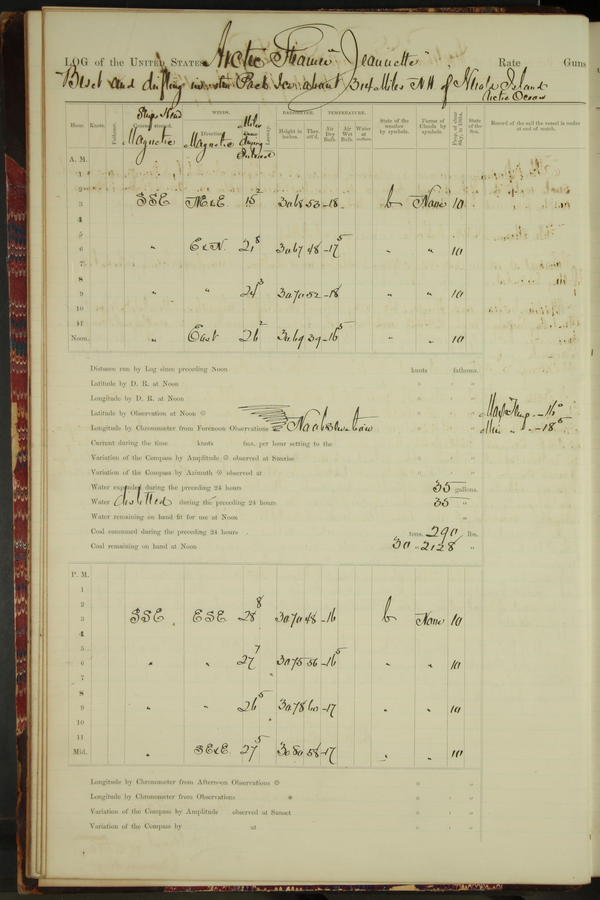 LOG of the UNITED STATES Arctic Steamer "Jeannette" Rate Guns
Beset and drifting in the Pack Ice about 314 Miles NW of Herald Island
Arctic Ocean
Hour. Knots. Fathoms. Ship's Head Magnetic WINDS. Direction. Magnetic Miles during Interval Leeway. BAROMETER. Height in inches. Ther. att'd. TEMPERATURE. Air Dry Bulb. Air Wet Bulb. Water at surface. State of the weather by symbols. Forms of Clouds by symbols. State of the Sea. Record of the sail the vessel is under at end of watch.
A. M.
1
2
3 SSE NE&E 15² 30 68 53 -18 b None 10
4
5
6 " E&N. 21⁸ 30 67 48 -17⁵ " " 10
7
8
9 " " 24³ 30 70 52 -18 " " 10
10
11
Noon. " East 26² 30 69 39 -16⁵ " " 10
Distance run by Log since preceding Noon knots fathoms.
Latitude by D. R. at Noon ° ' "
Longitude by D. R. at Noon ° ' "
Latitude by Observation at Noon ° ' "
Longitude by Chronometer from Forenoon Observations No observation
Max. Temp. -16°
Min " -18⁵
Current during the time knots fms. per hour setting to the
Variation of the Compass by Amplitude observed at Sunrise
Variation of the Compass by Azimuth observed at
Water expended during the preceding 24 hours 35 gallons.
Water distilled during the preceding 24 hours 35 "
Water remaining on hand fit for use at Noon "
Coal consumed during the preceding 24 hours tons. 290 lbs.
Coal remaining on hand at Noon 30 " 2128 "
P. M.
1
2
3 SSE ESE 28⁸ 30 70 48 -16 b None 10
4
5
6 " " 27⁷ 30 75 56 -16⁵ " " 10
7
8
9 " " 26⁵ 30 78 60 -17 " " 10
10
11
Mid. " SE&E. 27⁵ 30 80 58 -17 " " 10
Longitude by Chronometer from Afternoon Observations ° ' "
Longitude by Chronometer from Observations ° ' "
Variation of the Compass by Amplitude observed at Sunset ° ' "
Variation of the Compass by at ° ' "